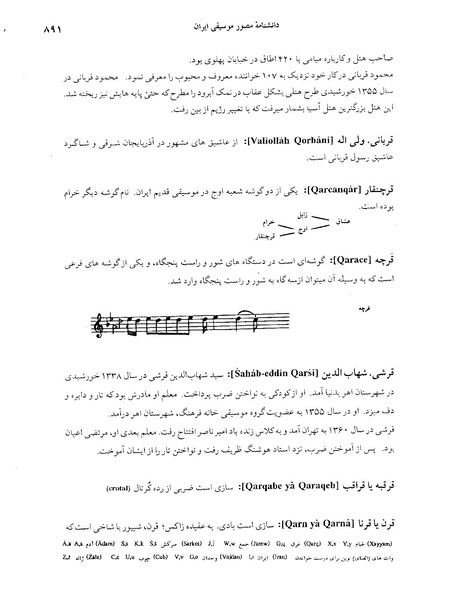 دانشنامهٔ مصور موسیقی ایران
۸۹۱
صاحب هتل و کاباره میامی با ۴۲۰ اطاق در خیابان پهلوی بود.
محمود قربانی در کار خود نزدیک به ۱۰۷ خواننده معروف و محبوب را معرفی نمود. محمود قربانی در
سال ۱۳۵۵ خورشیدی طرح هتلی بشکل عقاب در نمک آبرود را مطرح که حتیٰ پایه هایش نیز ریخته شد.
این هتل بزرگترین هتل آسیا بشمار میرفت که با تغییر رژیم از بین رفت.
قربانی، ولی اله [Valiollâh Qorbâni]: از عاشیق های مشهور در آذربایجان شرقی و شاگرد
عاشیق رسول قربانی است.
قرچنقار [Qarcanqâr]: یکی از دو گوشه شعبه اوج در موسیقی قدیم ایران. نام گوشه دیگر خرام
بوده است.
عشاق
زابل
اوج
خرام
قرچنقار
قَرچه [Qarace]: گوشه‌ای است در دستگاه های شور و راست پنجگاه، و یکی از گوشه های فرعی
است که به وسیلهٔ آن میتوان از سه‌گاه به شور و راست پنجگاه وارد شد.
قرچه
قرشی، شهاب الدین [Šahâb-eddin Qarši]: سید شهاب‌الدین قرشی در سال ۱۳۳۸ خورشیدی
در شهرستان اهر بدنیا آمد. او از کودکی به نواختن ضرب پرداخت. معلم او مادرش بود که تار و دایره و
دف میزد. او در سال ۱۳۵۵ به عضویت گروه موسیقی خانه فرهنگ، شهرستان اهر درآمد.
قرشی در سال ۱۳۶۰ به تهران آمد و به کلاس زنده یاد امیر ناصر افتتاح رفت. معلم بعدی او، مرتضی اعیان
بود. پس از آموختن ضرب، نزد استاد هوشنگ ظریف رفت و نواختن تار را از ایشان آموخت.
قرقبه یا قراقب [Qarqabe yâ Qaraqeb]: سازی است ضربی از رده کُرتال (crotal)
قرن یا قرنا [Qarn yâ Qarnâ]: سازی است بادی. به عقیده زاکس؛ قرن، شیپور یا شاخی است که